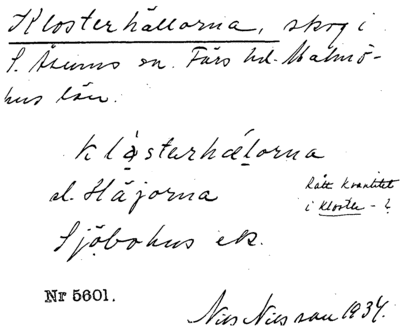 Klosterhällorna, skog i
S. Åsums sn. Färs hd. Malmö-
hus län.
Klåsterhælorna
el. Häjorna
Rätt kvantitet
i Kloster-?
Sjöbohus ek.
Nr 5601.
Nils Nilsson 1934.